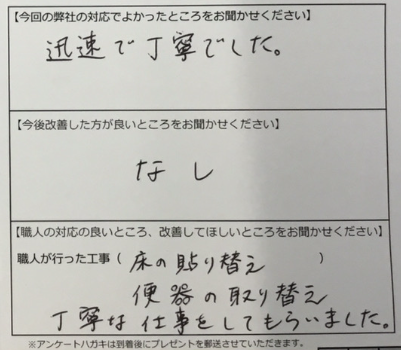 【今回の弊社の対応でよかったところをお聞かせください】
迅速で丁寧でした。
【今後改善した方が良いところをお聞かせください】
なし
【職人の対応の良いところ、改善してほしいところをお聞かせください】
職人が行った工事（床の貼り替え）
便器の取り替え
丁寧な仕事をしてもらいました。
※アンケートハガキは到着後にプレゼントを郵送させていただきます。